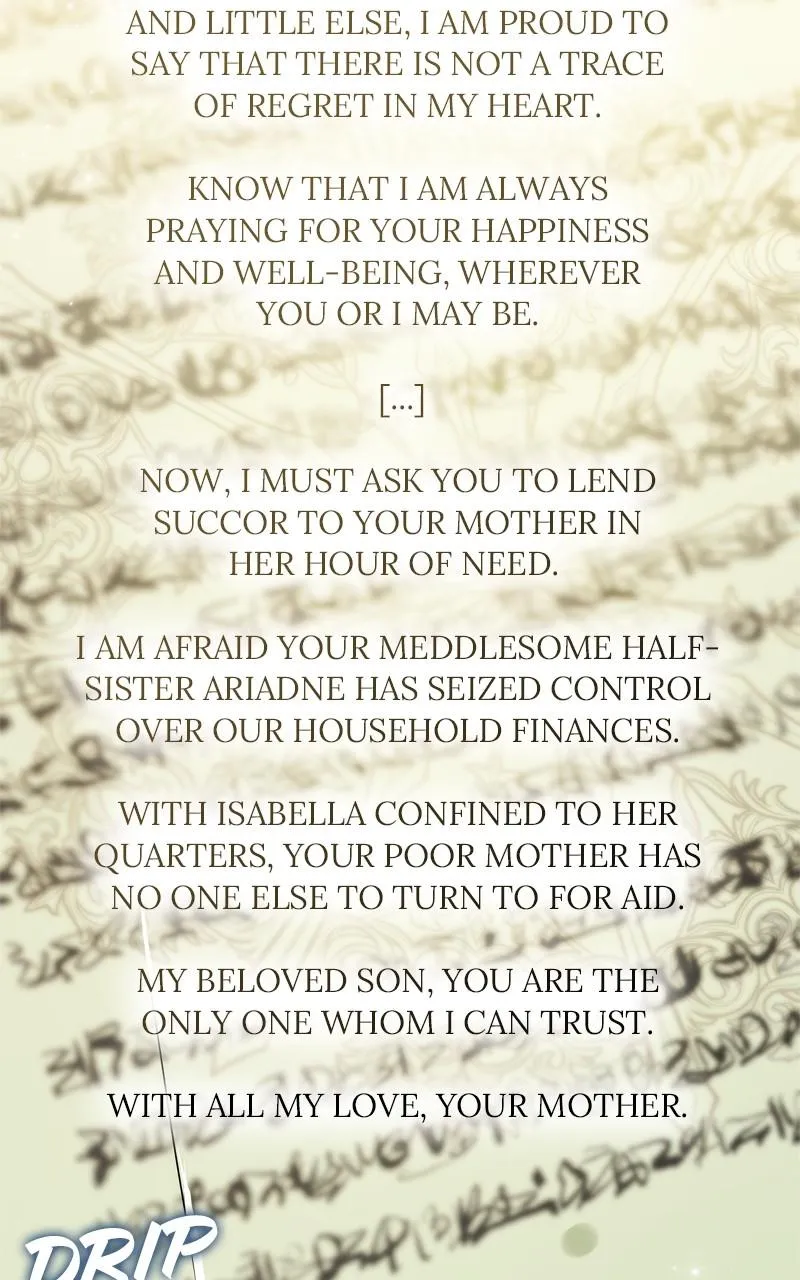 AND LITTLE ELSE, I AM PROUD TO
SAY THAT THERE IS NOT A TRACE
OF REGRET IN MY HEART.
KNOW THAT I AM ALWAYS
PRAYING FOR YOUR HAPPINESS
AND WELL-BEING, WHEREVER
YOU OR I MAY BE.
[...]
NOW, I MUST ASK YOU TO LEND
SUCCOR TO YOUR MOTHER IN
HER HOUR OF NEED.
I AM AFRAID YOUR MEDDLESOME HALF-
SISTER ARIADNE HAS SEIZED CONTROL
OVER OUR HOUSEHOLD FINANCES.
WITH ISABELLA CONFINED TO HER
QUARTERS, YOUR POOR MOTHER HAS
NO ONE ELSE TO TURN TO FOR AID.
MY BELOVED SON, YOU ARE THE
ONLY ONE WHOM I CAN TRUST.
WITH ALL MY LOVE, YOUR MOTHER.
DRIP